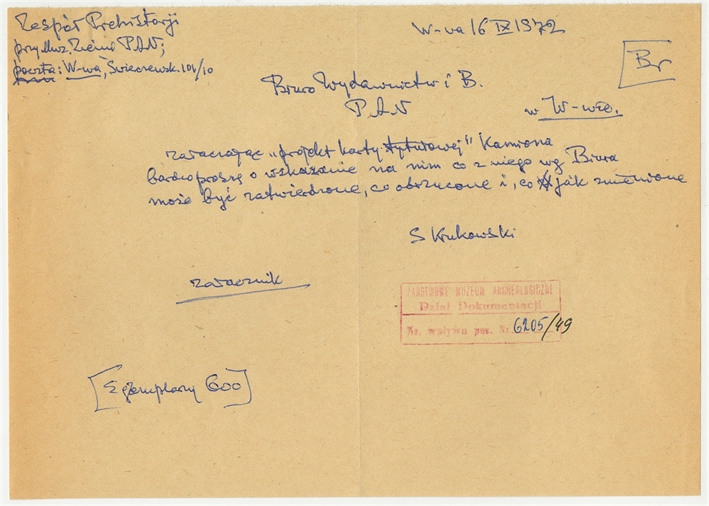 Zespół Prehistorji
przy Muz. Ziemi PAN;
poczta: W-wa, Świerczewsk. 101/10
W-wa 16 IX 1972
Br
Biuro Wydawnictw i B.
PAN
w W-wie.
załaczając „projekt karty tytułowej" Kamiona
bardzo proszę o wskazanie na nim co z niego wg Biura
może być zatwierdzone, co odrzucone i, co jak zmienione
S Krukowski
załacznik
PAŃSTWOWE MUZEUM ARCHEOLOGICZNE
Dział Dokumentacji
Nr. wpływu poz. Nr. 6205/49
[Egzemplarzy 600]